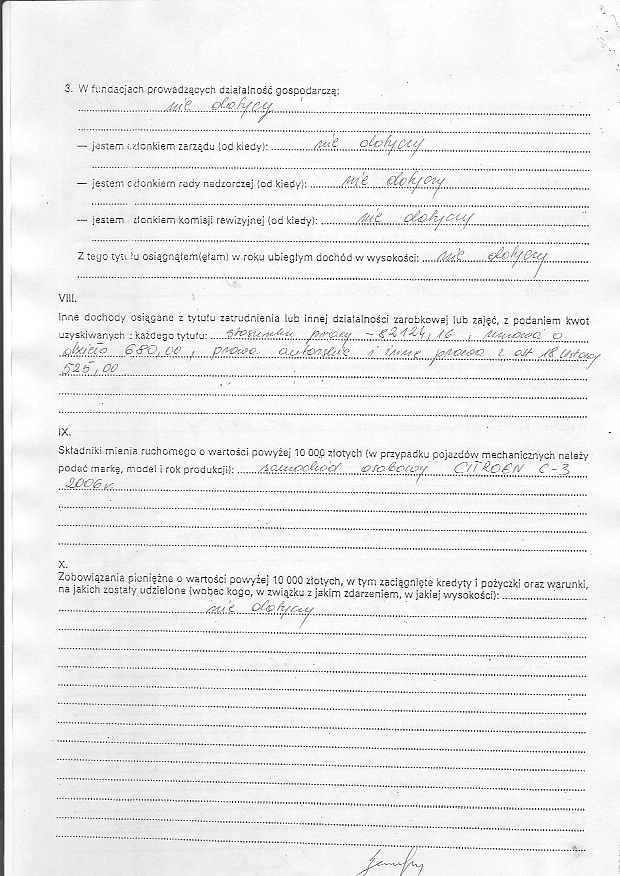 3. W fundacjach prowadzących działalność gospodarczą:
nie dotyczy
— jestem członkiem zarządu (od kiedy): nie dotyczy
— jestem członkiem rady nadzorczej (od kiedy): nie dotyczy
— jestem członkiem komisji rewizyjnej (od kiedy): nie dotyczy
Z tego tytułu osiągnąłem(ęłam) w roku ubiegłym dochód w wysokości: nie dotyczy
VIII.
Inne dochody osiągane z tytułu zatrudnienia lub innej działalności zarobkowej lub zajęć, z podaniem kwot
uzyskiwanych z każdego tytułu: stosunku pracy - 82124,16, umowa o
dzieło 680,00, prawa autorskie i inne prawa z art 18 Ustawy
525,00
IX.
Składniki mienia ruchomego o wartości powyżej 10 000 złotych (w przypadku pojazdów mechanicznych należy
podać markę, model i rok produkcji): samochód osobowy CITROEN C-3
2006 r.
X.
Zobowiązania pieniężne o wartości powyżej 10 000 złotych, w tym zaciągnięte kredyty i pożyczki oraz warunki,
na jakich zostały udzielone (wobec kogo, w związku z jakim zdarzeniem, w jakiej wysokości):
nie dotyczy